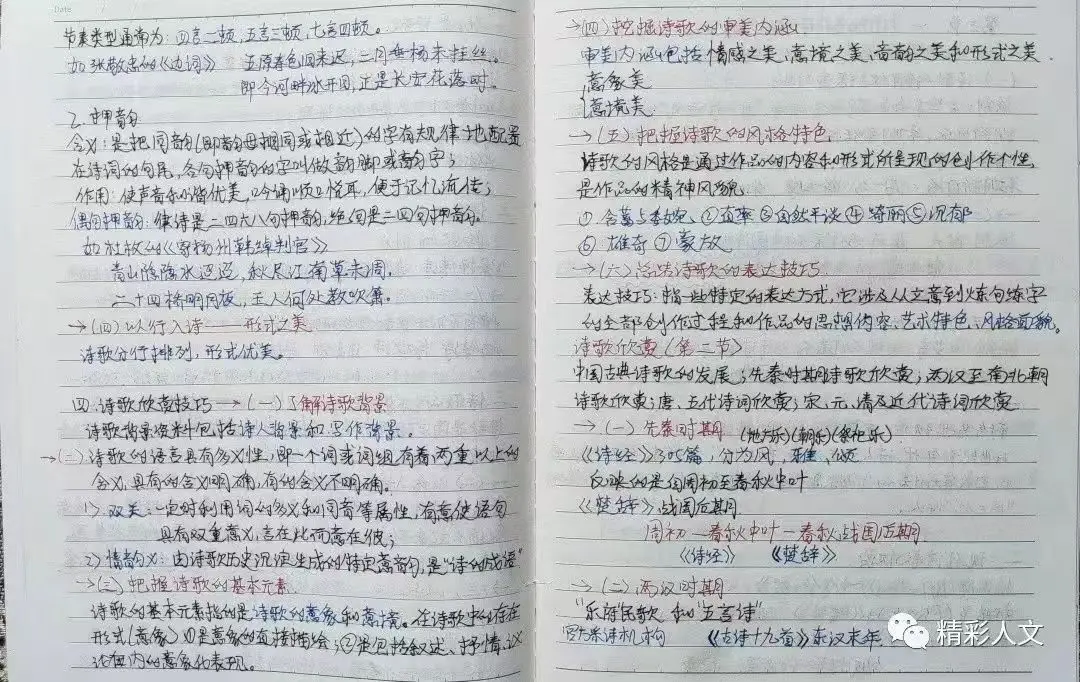 Date
节奏类型通常为：四言二顿，五言三顿，七言四顿。
如张敬忠的《边词》 五原春色旧来迟，二月垂杨未挂丝。
即今河畔冰开日，正是长安花落时。
2. 押韵
含义：是把同韵(即韵母相同或相近)的字有规律地配置
在诗词的句尾，各句押韵的字叫做韵脚或韵字；
作用：使声音和谐优美，吟诵顺口悦耳，便于记忆流传；
偶句押韵：律诗是二四六八句押韵，绝句是二四句押韵。
如杜牧的《寄扬州韩绰判官》
青山隐隐水迢迢，秋尽江南草未凋。
二十四桥明月夜，玉人何处教吹箫。
→(四)以行入诗——形式之美
诗歌分行排列，形式优美。
四.诗歌欣赏技巧→(一)了解诗歌背景
诗歌背景资料包括诗人背景和写作背景。
→(二)诗歌的语言具有多义性，即一个词或词组有着两重以上的
含义，具有的含义明确，有的含义不明确。
1)双关：一定时利用词的多义和同音等属性，有意使语句
具有双重意义，言在此而意在彼；
2)情韵义：由诗歌历史沉淀生成的特定意韵，是“诗的成语”
→(三)把握诗歌的基本元素
诗歌的基本元素指的是诗歌的意象和意境。在诗歌中的存在
形式(意象)①是意象的直接描绘；②是包括叙述、抒情、议
论在内的意象化表现。
→(四)挖掘诗歌的审美内涵
审美内涵包括情感之美、意境之美、音韵之美和形式之美.
意象美
意境美
→(五)把握诗歌的风格特色
诗歌的风格是通过作品的内容和形式所呈现的创作个性,
是作品的精神风貌.
①含蓄与委婉，②直率③自然平淡④绮丽⑤沉郁
⑥雄奇⑦豪放
→(六)总结诗歌的表达技巧
表达技巧：指一些特定的表达方式，它涉及从立意到炼句练字
的全部创作过程和作品的思想内容、艺术特色、风格面貌。
诗歌欣赏(第二节)
中国古典诗歌的发展；先秦时期诗歌欣赏；两汉至南北朝
诗歌欣赏；唐、五代诗词欣赏；宋、元、清及近代诗词欣赏
→(一)先秦时期 (地方乐)(朝乐)(祭祀乐).
《诗经》305篇，分为风、雅、颂
反映的是自周初至春秋中叶
《楚辞》，战国后期
周初—春秋中叶—春秋战国后期
《诗经》 《楚辞》
→(二)两汉时期
“乐府民歌”和“五言诗”
官方采诗机构 《古诗十九首》东汉末年
精彩人文